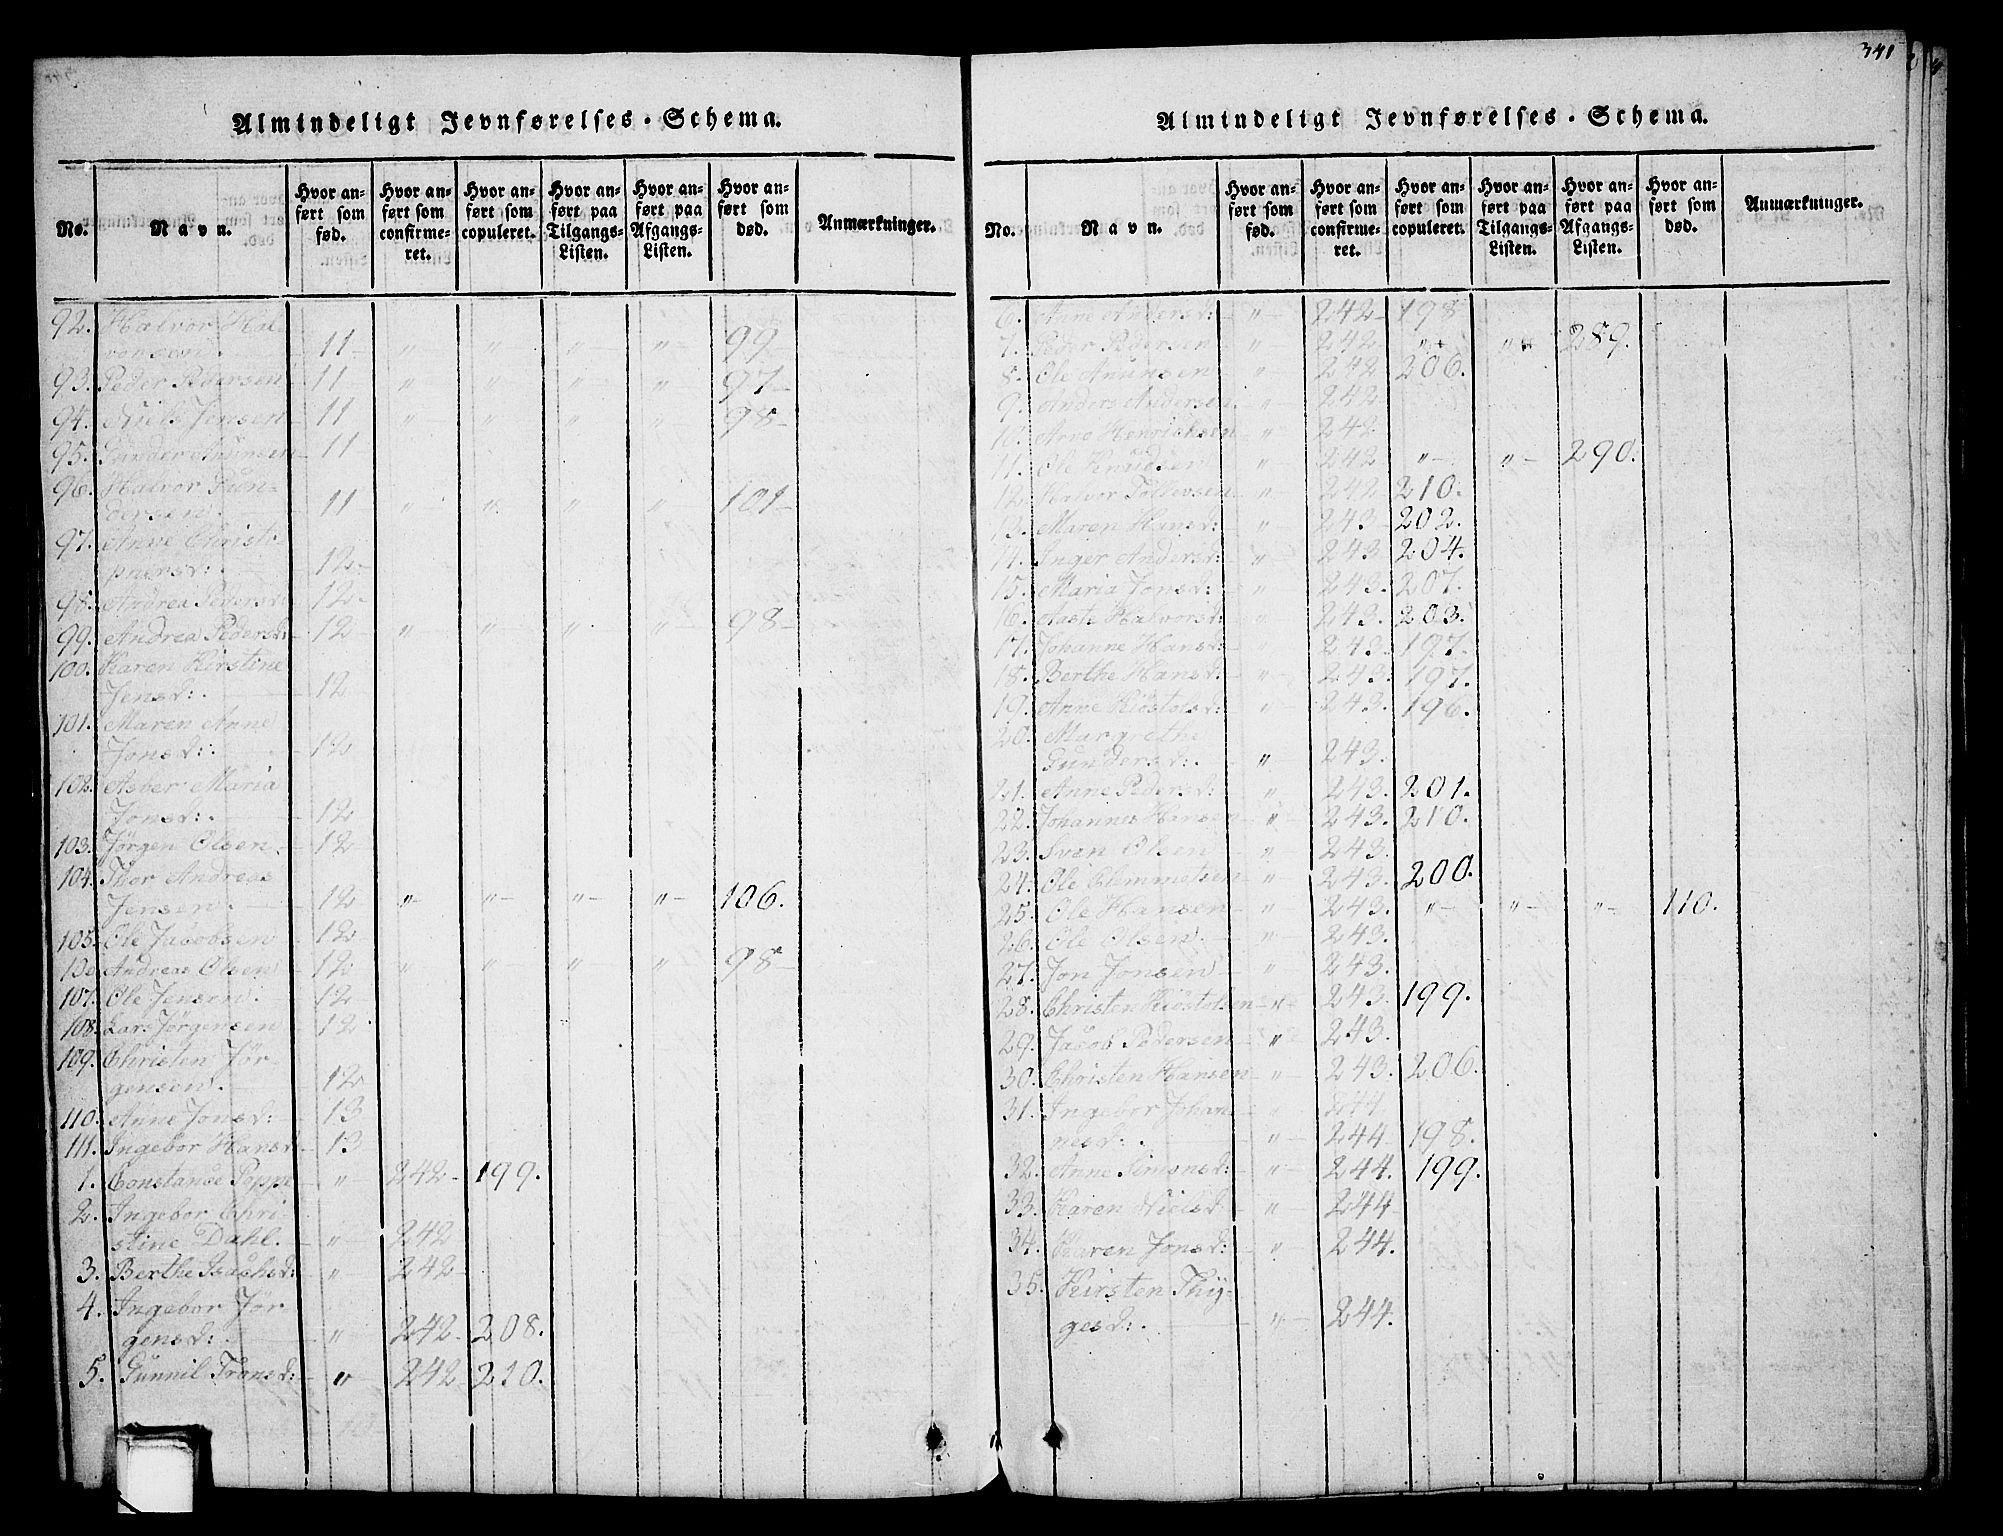 341
Almindeligt Jevnførelses-Schema.
No. Navn. Hvor anført som fød. Hvor anført som confirmeret. Hvor anført som copuleret. Hvor anført paa Tilgangs-Listen. Hvor anført paa Afgangs-Listen. Hvor anført som død. Anmærkninger.
92. Halvor Hal-
vorsen. 11 " " " " 99
93. Peder Pedersen 11 " " " " 97
94. Niels Jensen 11 " " " " 98
95. Gunder Anunsen 11
96. Halvor Gun-
dersen. 11 " " " " 101
97. Anne Christ-
12
98. Andrea Pedersd: 12
99. Andrea Pedersd: 12 " " " " 98
100. Karen Kirstine
Jensd:. 12
101. Maren Anne
Jonsd:. 12
102. Asber Maria
Jonsd:. 12
103. Jørgen Olsen. 12
104. Thor Andreas
Jensen. 12 " " " " 106.
105. Ole Jacobsen 12
Andreas Olsen 12 " " " " 98
107. Ole Jensen. 12
108. Lars Jørgensen 12
109. Christen Jør-
gensen. 12
110. Anne Jonsd: 13
111. Ingebor Hansd. 13
1. Constance Poppe " 242 199.
2. Ingebor Chri-
stine Dahl. " 242
3. Berthe Isachsd: " 242
4. Ingebor Jør-
gensd:. " 242 208.
5. Gunnil Transd: " 242 210.
Almindeligt Jevnførelses-Schema.
No. Navn. Hvor anført som fød. Hvor anført som confirmeret. Hvor anført som copuleret. Hvor anført paa Tilgangs-Listen. Hvor anført paa Afgangs-Listen. Hvor anført som død. Anmærkninger.
6. Anne Andersd: " 242 198
7. Peder Pedersen " 242 " " 289.
8. Ole Anunsen " 242 206.
9. Anders Andersen. " 242
10. Arve Henrichsen " 242
11. Ole Knudsen " 242 " " 290.
12. Halvor Tollevsen " 242 210.
13. Maren Hansd: " 243 202.
14. Inger Andersd: " 243 204.
15. Maria Jonsd: " 243. 207.
16. Aaste Halvorsd: " 243. 203.
17. Johanne Hansd: " 243. 197.
18. Berthe Hansd: " 243. 197.
19. Anne Kiostolsd: " 243. 196.
20. Margrethe
Gundersd:. " 243.
21. Anne Pedersd: " 243. 201.
22. Johannes Hansen " 243. 210.
23. Sven Olsen " 243.
24. Ole Clemmetsen " 243. 200.
25. Ole Hansen " 243. " " " 110.
26. Ole Olsen. " 243.
27. Jon Jonsen " 243.
28. Christen Kiostolsen " 243. 199.
29. Jacob Pedersen " 243.
30. Christen Hansen " 243. 206.
31. Ingebor Johan- " 244
nesd:. " 244 198.
32. Anne Simonsd: " 244. 199.
33. Karen Nielsd. " 244
34. Karen Jonsd: " 244.
35. Kirsten Thy-
gesd:. " 244.